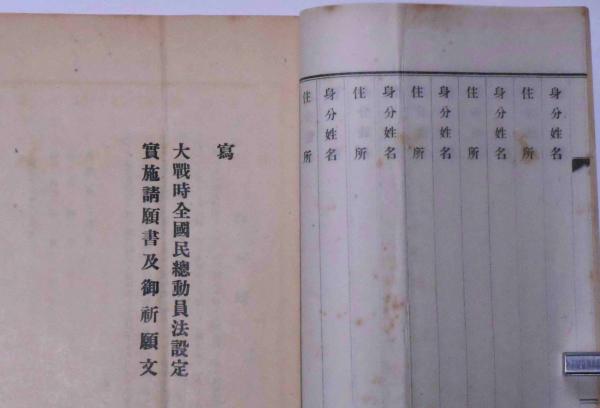 身分姓名
住所
身分姓名
住所
身分姓名
住所
身分姓名
住所
身分姓名
住所
寫
大戰時全國民總動員法設定
實施請願書及御祈願文